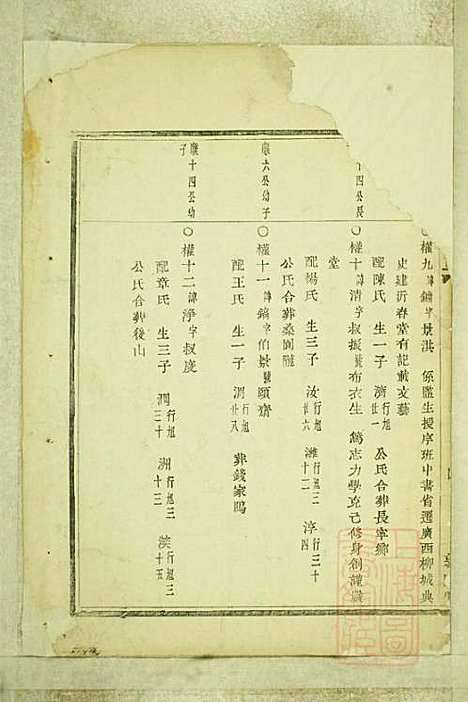 ○權九諱鏞字景淇 係監生授序班中書省遷廣西柳城典
史建沂春堂有記載文藝
配陳氏 生一子 濟行旭廿一 公氏合葬長寧鄉
十四公長
○權十諱清字叔振號布衣生 篤志力學克己修身創謹
堂
配楊氏 生三子 汝行旭廿六 濰行三十二 淳行三十四
公氏合葬桑園隴
康六公幼子
○權十一諱鎬字伯景號頤齋
配王氏 生一子 澗行旭廿八 葬錢家隝
康十四公幼子
○權十二諱淨字叔度
配章氏 生三子 潤行旭三十 湖行旭三十三 渶行旭三十五
公氏合葬後山